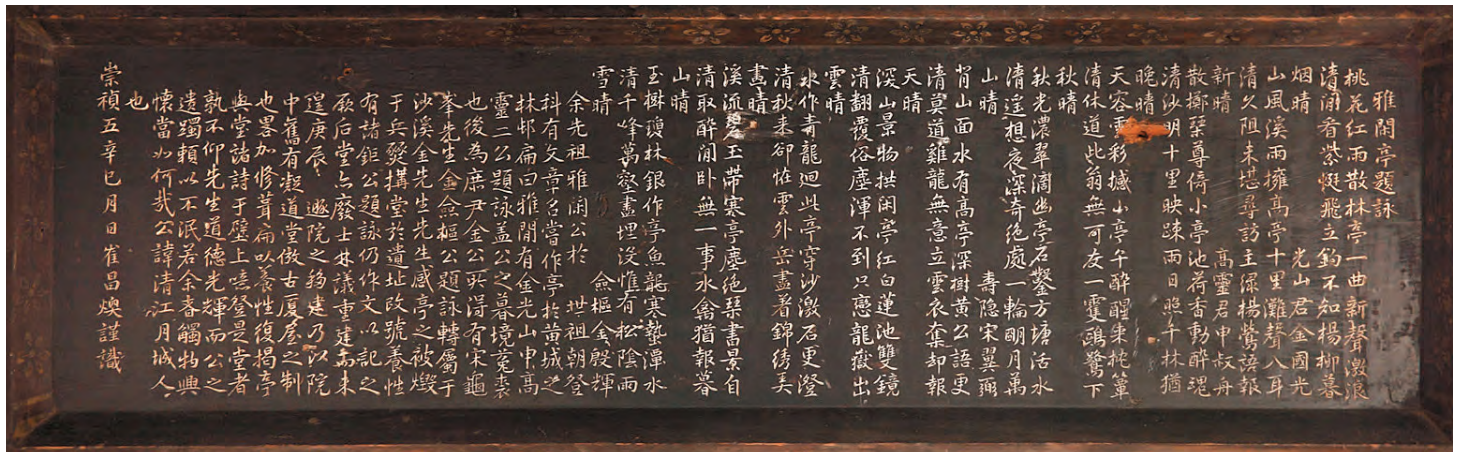 雅閒亭題詠
桃花紅雨散林亭一曲新聲激浪
清閒看紫蜓飛立釣不知楊柳暮
烟晴　光山君金國光
山風溪雨擁高亭十里灘聲入耳
清久阻未堪尋訪主綠楊鶯語報
新晴　高靈君申叔舟
散擲琴尊倚小亭池荷香動醉魂
清沙明十里映踈雨日照千林猶
晚晴
天容雲彩撼小亭午醉醒來枕簟
清休道此翁無可友一雙鷗鷺下
秋晴
秋光濃翠滴幽亭石鑿方塘活水
清遙想夜深奇絕處一輪明月萬
山晴　壽隱宋翼弼
背山面水有高亭深樹黃公語更
清莫道雞龍無意立雲衣奪却報
天晴
深山景物拱閑亭紅白蓮池雙鏡
清翻覆俗塵渾不到只應龍嶽出
雲晴
水作青龍迴此亭穿沙激石更澄
清秋來卻怪雲外岳盡着錦綉美
畫晴
溪流碧玉帶寒亭塵絕琴書景自
清取醉閒卧無一事水禽猶報暮
山晴
玉樹瓊林銀作亭魚龍寒蟄渾水
清千峰萬壑盡埋沒惟有松陰雨
雪晴　僉樞金殷輝
余先祖雅閑公於　世祖朝登
科有文章名嘗作亭於黃城之
林邨扁曰雅閒有金光山申高
靈二公題詠盖公之暮境菟裘
也後為庶尹金公所得有宋龜
峯先生金僉樞公題詠轉屬于
沙溪金先生先生感亭之被燬
于兵燹搆堂於遺址改號養性
有諸鉅公題詠仍作文以記之
厥后堂亦廢士林議重建而未
遑庚辰遯院之移建乃以院
中舊有凝道堂倣古厦屋之制
也畧加修葺扁以養性復揭亭
與堂諸詩于壁上噫登是堂者
孰不仰先生道德光輝而公之
遺躅賴以不泯若余者觸物興
懷當如何哉公諱清江月城人
也
崇禎五辛巳月日崔昌煥謹識